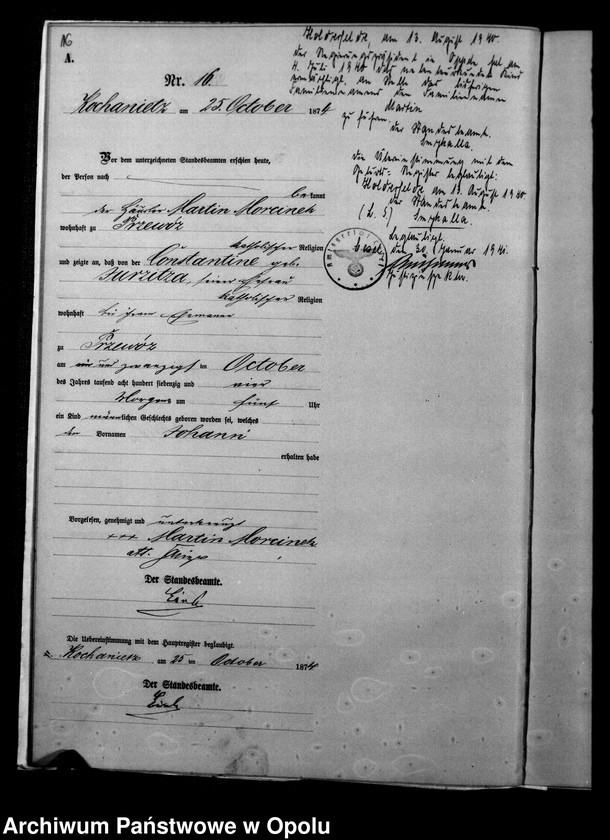 16
A.
Nr. 16.
Kochanietz am 25. October 1874
Vor dem unterzeichneten Standesbeamten erschien heute,
der Person nach
bekannt
der Häusler Martin Morcinek
wohnhaft zu Przewóz
katholischer Religion
und zeigte an, daß von der Constantine geb.
Juritza, seiner Ehefrau
katholischer Religion
wohnhaft bei ihrem Ehemanne
zu Przewóz
am ein und zwanzigst en October
des Jahres tausend acht hundert siebenzig und vier
Morgens um fünf Uhr
ein Kind männlichen Geschlechts geboren worden sei, welches
den Vornamen Johann
erhalten habe
Vorgelesen, genehmigt und unterkreuzt
+++ Martin Morcinek
Der Standesbeamte.
Die Uebereinstimmung mit dem Hauptregister beglaubigt.
Kochanietz am 25 ten October 1874
Der Standesbeamte.
Holderfelde, am 13. August 1940.
Der Regierungspräsident in Oppeln hat am
4. Juli 1940 das nebenbenannte Kind
ermächtigt, an Stelle des bisherigen
Familiennamens den Familiennamen
Martin
zu führen.
Der Standesbeamte.
Smykalla.
Die Übereinstimmung mit dem
Geburts-Register beglaubigt:
Holderfelde am 13. August 1940
Der Standesbeamte.
(L. S) Smykalla.
Beglaubigt.
den 30. Januar 1941.
Justizinspektor.
Archiwum Państwowe w Opolu